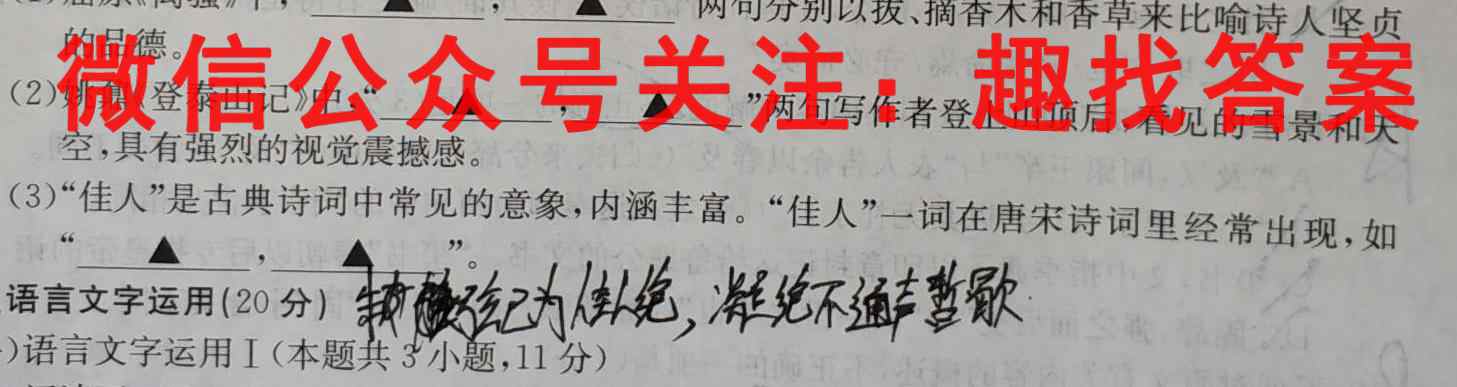 (1)屈原《离骚》中,“▲,▲”两句分别以拔、摘香木和香草来比喻诗人坚贞
的品德。
微信公众号关注:趣找答案
(2)姚鼐《登泰山记》中,“▲,▲”两句写作者登上山顶后,看见的雪景和天
空,具有强烈的视觉震撼感。
(3)“佳人”是古典诗词中常见的意象,内涵丰富。“佳人”一词在唐宋诗词里经常出现,如
“▲,▲”。
语言文字运用(20分)
已为佳人绝,凝绝不通声暂歇
)语言文字运用Ⅰ(本题共3小题,11分)